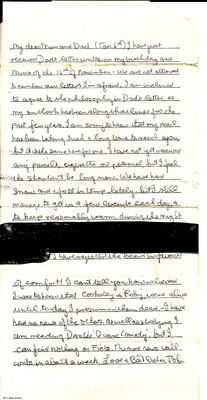 My dear Mum and Dad. (Jan 6th) I have just
received Dad's letter written on my birthday and
Mum's of the 16th of November - We are not allowed
to number our letters I'm afraid. I am inclined
to agree to the philosophy in Dads letter, as
my outlook has been along those lines for the
past few years. I am sorry to hear that my mail
has been taking such a long time to reach you
but it is the same here for me. I have not yet received
any parcels, cigarette or personal, but I feel
they shouldn't be long now. We have had
snow and a frost in temp lately. but I still
manage to get in a few circuits each day, &
to keep reasonably warm during the night
I have recalled the
of comfort! I can't tell you how relieved
I was to hear that and Roby, were alive
until to day I presumed them dead. I have
had no news of the others. as well as studying I
am reading Dante's Divine Comedy, but I
can find nothing in Mum and we will
write in about a week, Love a Bill Dides John